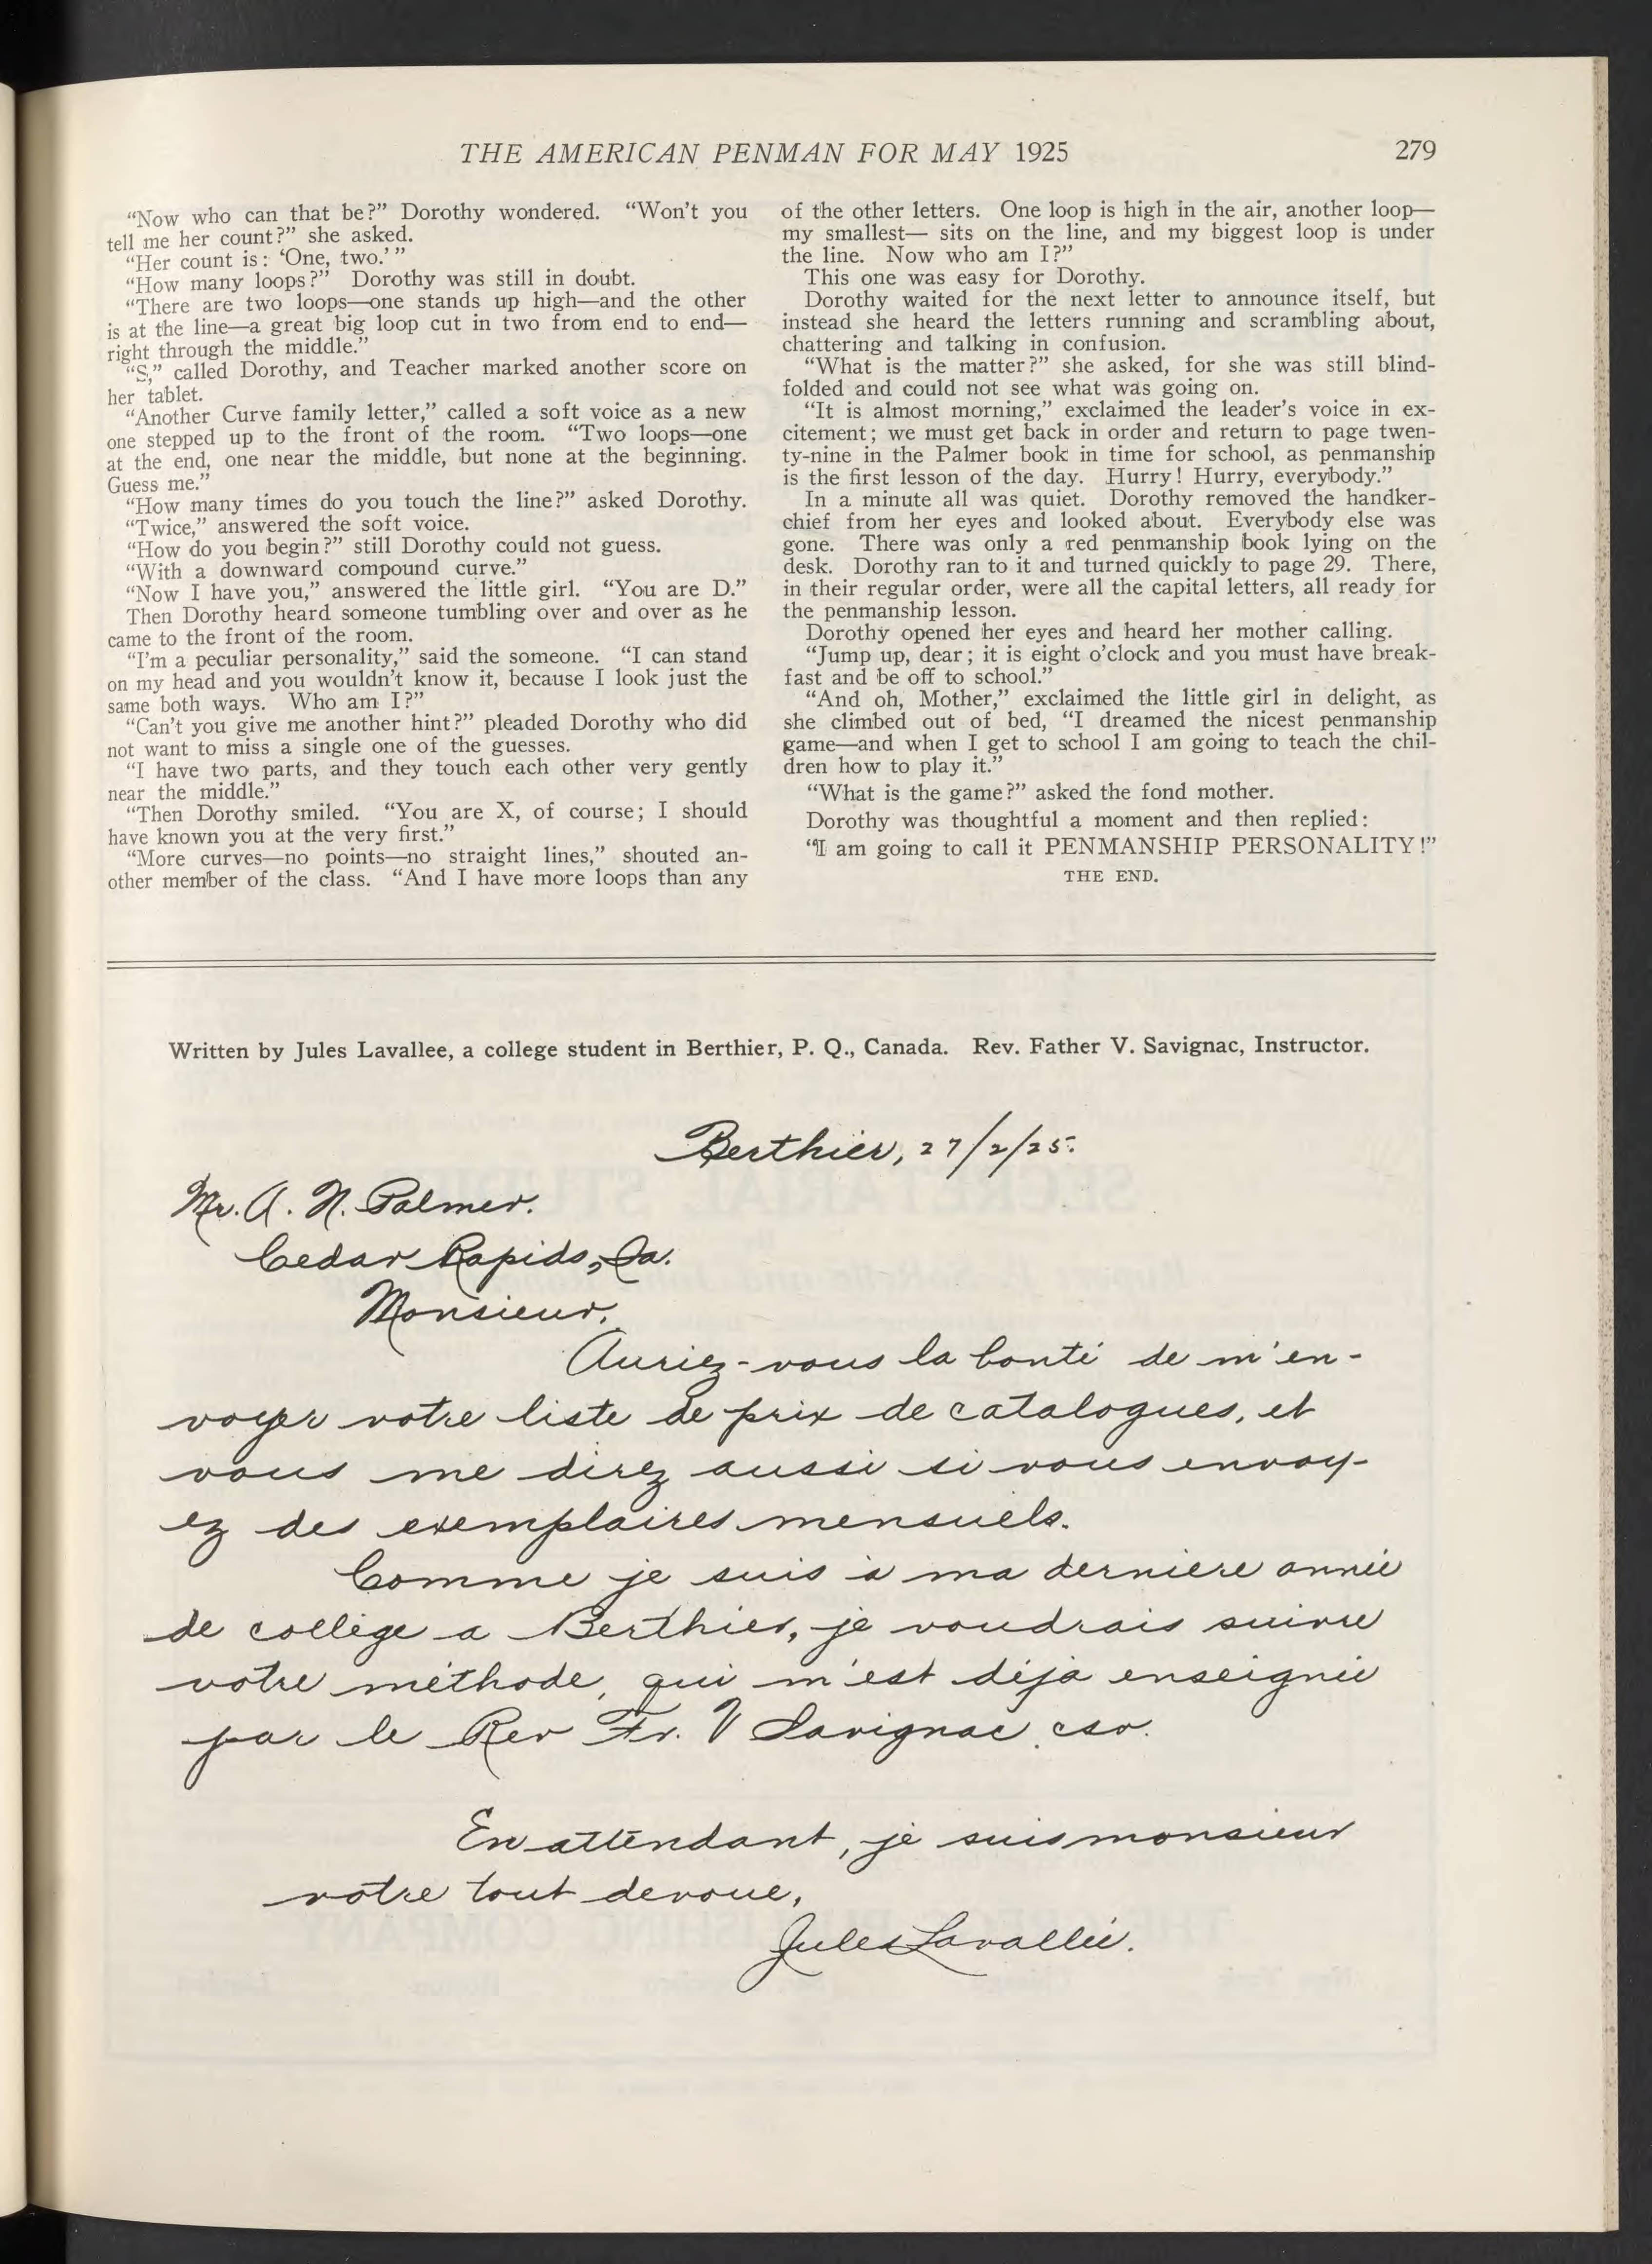 THE AMERICAN PENMAN FOR MAY 1925
279
“Now who can that be?” Dorothy wondered. “Won’t you
tell me her count?” she asked.
“Her count is: ‘One, two.’ ”
“How many loops?” Dorothy was still in doubt.
“There are two loops—one stands up high—and the other
is at the line—a great big loop cut in two from end to end—
right through the middle.”
“S,” called Dorothy, and Teacher marked another score on
her tablet.
“Another Curve family letter,” called a soft voice as a new
one stepped up to the front of the room. “Two loops—one
at the end, one near the middle, but none at the beginning.
Guess me.”
“How many times do you touch the line?” asked Dorothy.
“Twice,” answered the soft voice.
“How do you begin?” still Dorothy could not guess.
“With a downward compound curve.”
“Now I have you,” answered the little girl. “You are D.”
Then Dorothy heard someone tumbling over and over as he
came to the front of the room.
“I’m a peculiar personality,” said the someone. “I can stand
on my head and you wouldn’t know it, because I look just the
same both ways. Who am I?”
“Can’t you give me another hint?” pleaded Dorothy who did
not want to miss a single one of the guesses.
“I have two parts, and they touch each other very gently
near the middle.”
“Then Dorothy smiled. “You are X, of course; I should
have known you at the very first.”
“More curves—no points—no straight lines,” shouted an-
other member of the class. “And I have more loops than any
of the other letters. One loop is high in the air, another loop—
my smallest— sits on the line, and my biggest loop is under
the line. Now who am I?”
This one was easy for Dorothy.
Dorothy waited for the next letter to announce itself, but
instead she heard the letters running and scrambling about,
chattering and talking in confusion.
“What is the matter?” she asked, for she was still blind-
folded and could not see what was going on.
“It is almost morning,” exclaimed the leader’s voice in ex-
citement; we must get back in order and return to page twen-
ty-nine in the Palmer book in time for school, as penmanship
is the first lesson of the day. Hurry! Hurry, everybody.”
In a minute all was quiet. Dorothy removed the handker-
chief from her eyes and looked about. Everybody else was
gone. There was only a red penmanship book lying on the
desk. Dorothy ran to it and turned quickly to page 29. There,
in their regular order, were all the capital letters, all ready for
the penmanship lesson.
Dorothy opened her eyes and heard her mother calling.
“Jump up, dear; it is eight o’clock and you must have break-
fast and be off to school.”
“And oh, Mother,” exclaimed the little girl in delight, as
she climbed out of bed, “I dreamed the nicest penmanship
game—and when I get to school I am going to teach the chil-
dren how to play it.”
“What is the game?” asked the fond mother.
Dorothy was thoughtful a moment and then replied:
“I am going to call it PENMANSHIP PERSONALITY!”
THE END.
Written by Jules Lavallee, a college student in Berthier, P. Q., Canada. Rev. Father V. Savignac, Instructor.
Berthier, 27/2/25.
Mr. A. N. Palmer.
Cedar Rapids, Ia.
Monsieur,
Auriez-vous la bonté de m'en-
voyer votre liste de prix de catalogues, et
vous me direz aussi si vous envoy-
ez des exemplaires mensuels.
Comme je suis à ma derniere année
de collège a Berthier, je voudrais suivre
votre méthode, qui m'est déjà enseignée
par le Rev Fr. V Savignac. csv.
En attendant, je suis monsieur
votre tout devoue,
Jules Lavallée.